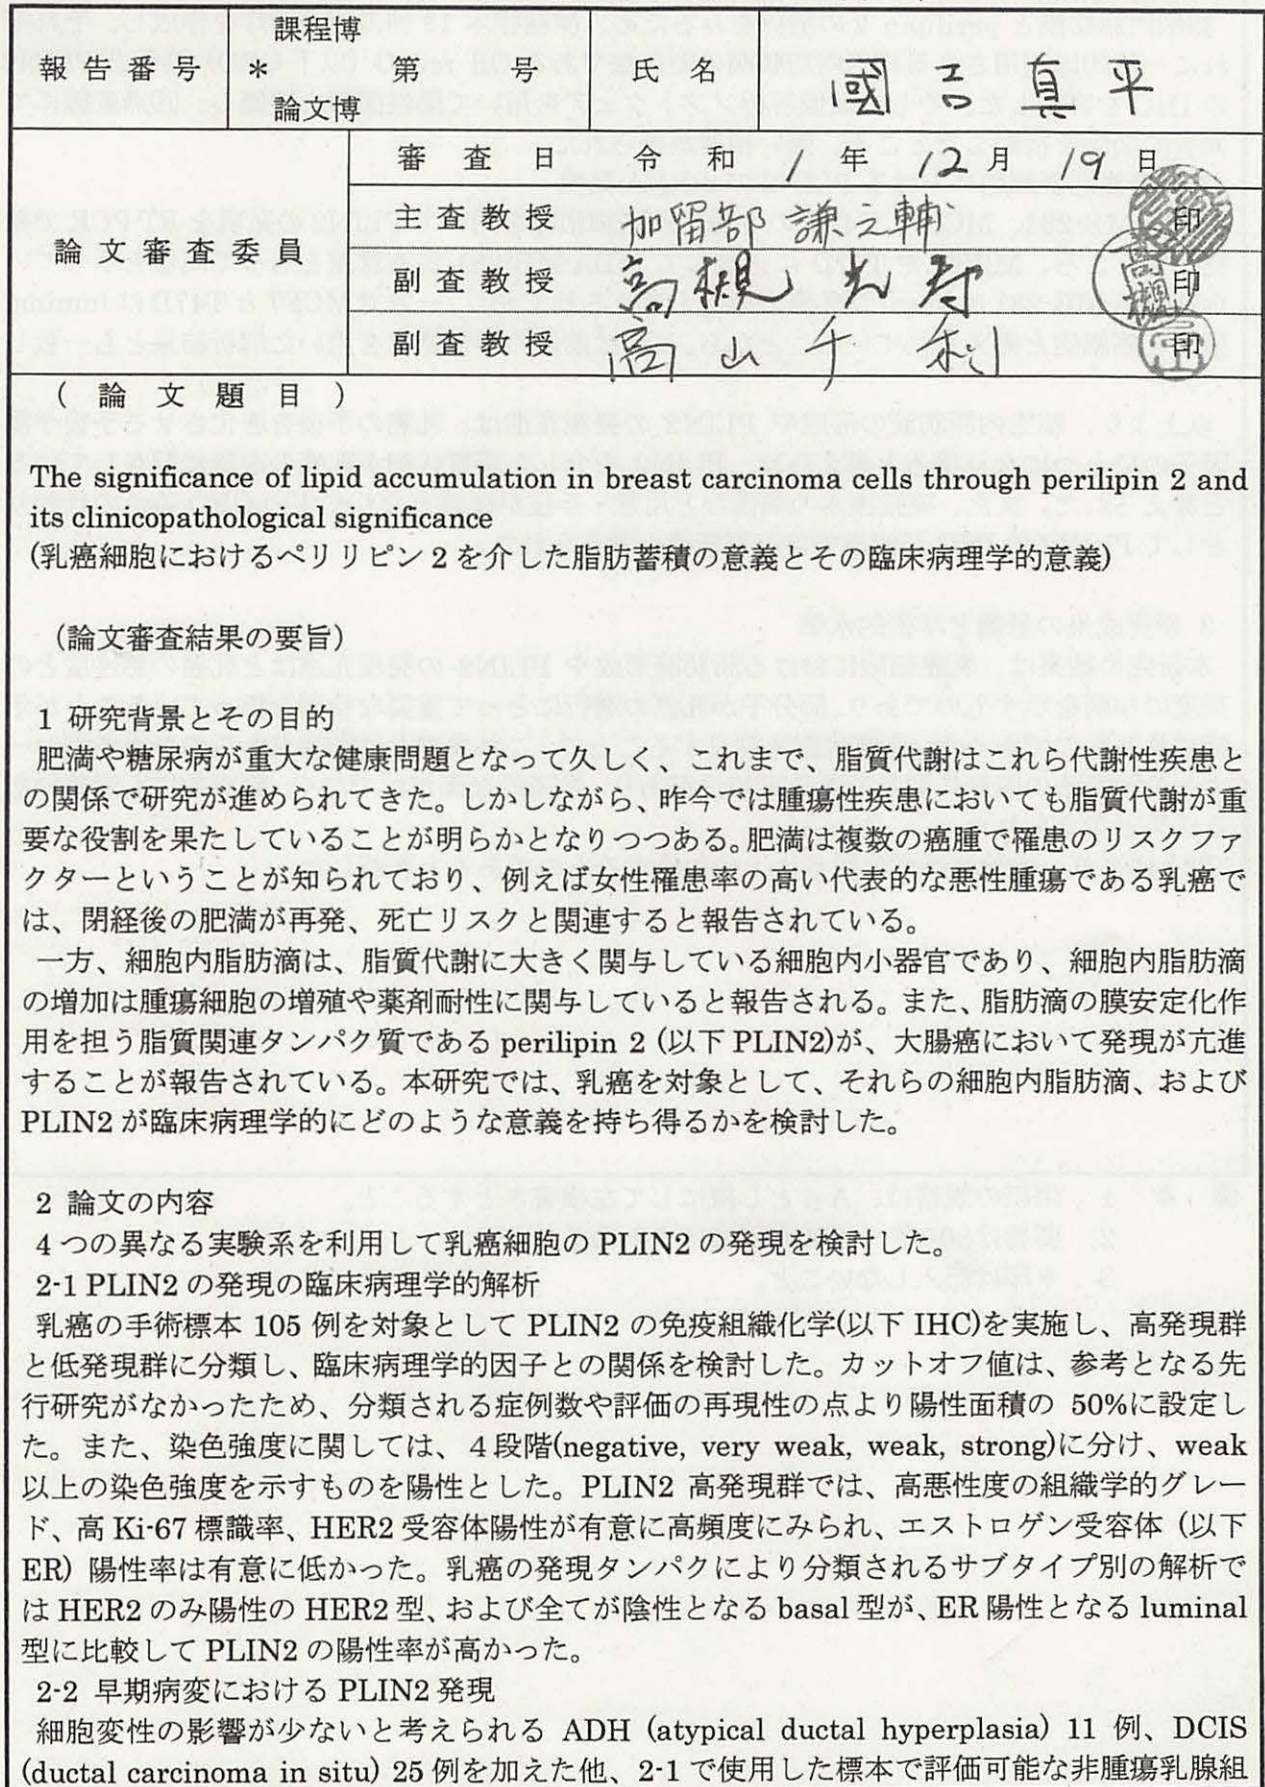 課程博
報告番号 * 第 号 氏名 國吉真平
論文博
審査日 令和 1 年 12 月 19 日
論文審査委員
主査教授 加留部 謙之輔 印
副査教授 高槻 光寿 印
副査教授 高山 千利 印
(論文題目)
The significance of lipid accumulation in breast carcinoma cells through perilipin 2 and
its clinicopathological significance
(乳癌細胞におけるペリリピン2を介した脂肪蓄積の意義とその臨床病理学的意義)
(論文審査結果の要旨)
1 研究背景とその目的
肥満や糖尿病が重大な健康問題となって久しく、これまで、脂質代謝はこれら代謝性疾患と
の関係で研究が進められてきた。しかしながら、昨今では腫瘍性疾患においても脂質代謝が重
要な役割を果たしていることが明らかとなりつつある。肥満は複数の癌腫で罹患のリスクファ
クターということが知られており、例えば女性罹患率の高い代表的な悪性腫瘍である乳癌で
は、閉経後の肥満が再発、死亡リスクと関連すると報告されている。
一方、細胞内脂肪滴は、脂質代謝に大きく関与している細胞内小器官であり、細胞内脂肪滴
の増加は腫瘍細胞の増殖や薬剤耐性に関与していると報告される。また、脂肪滴の膜安定化作
用を担う脂質関連タンパク質である perilipin 2 (以下 PLIN2)が、大腸癌において発現が亢進
することが報告されている。本研究では、乳癌を対象として、それらの細胞内脂肪滴、および
PLIN2 が臨床病理学的にどのような意義を持ち得るかを検討した。
2 論文の内容
4つの異なる実験系を利用して乳癌細胞の PLIN2 の発現を検討した。
2-1 PLIN2 の発現の臨床病理学的解析
乳癌の手術標本 105 例を対象として PLIN2 の免疫組織化学(以下 IHC)を実施し、高発現群
と低発現群に分類し、臨床病理学的因子との関係を検討した。カットオフ値は、参考となる先
行研究がなかったため、分類される症例数や評価の再現性の点より陽性面積の 50%に設定し
た。また、染色強度に関しては、4段階(negative, very weak, weak, strong)に分け、weak
以上の染色強度を示すものを陽性とした。PLIN2 高発現群では、高悪性度の組織学的グレー
ド、高 Ki-67 標識率、HER2 受容体陽性が有意に高頻度にみられ、エストロゲン受容体 (以下
ER) 陽性率は有意に低かった。乳癌の発現タンパクにより分類されるサブタイプ別の解析で
は HER2 のみ陽性の HER2 型、および全てが陰性となる basal 型が、ER 陽性となる luminal
型に比較して PLIN2 の陽性率が高かった。
2-2 早期病変における PLIN2 発現
細胞変性の影響が少ないと考えられる ADH (atypical ductal hyperplasia) 11 例、DCIS
(ductal carcinoma in situ) 25 例を加えた他、2-1 で使用した標本で評価可能な非腫瘍乳腺組